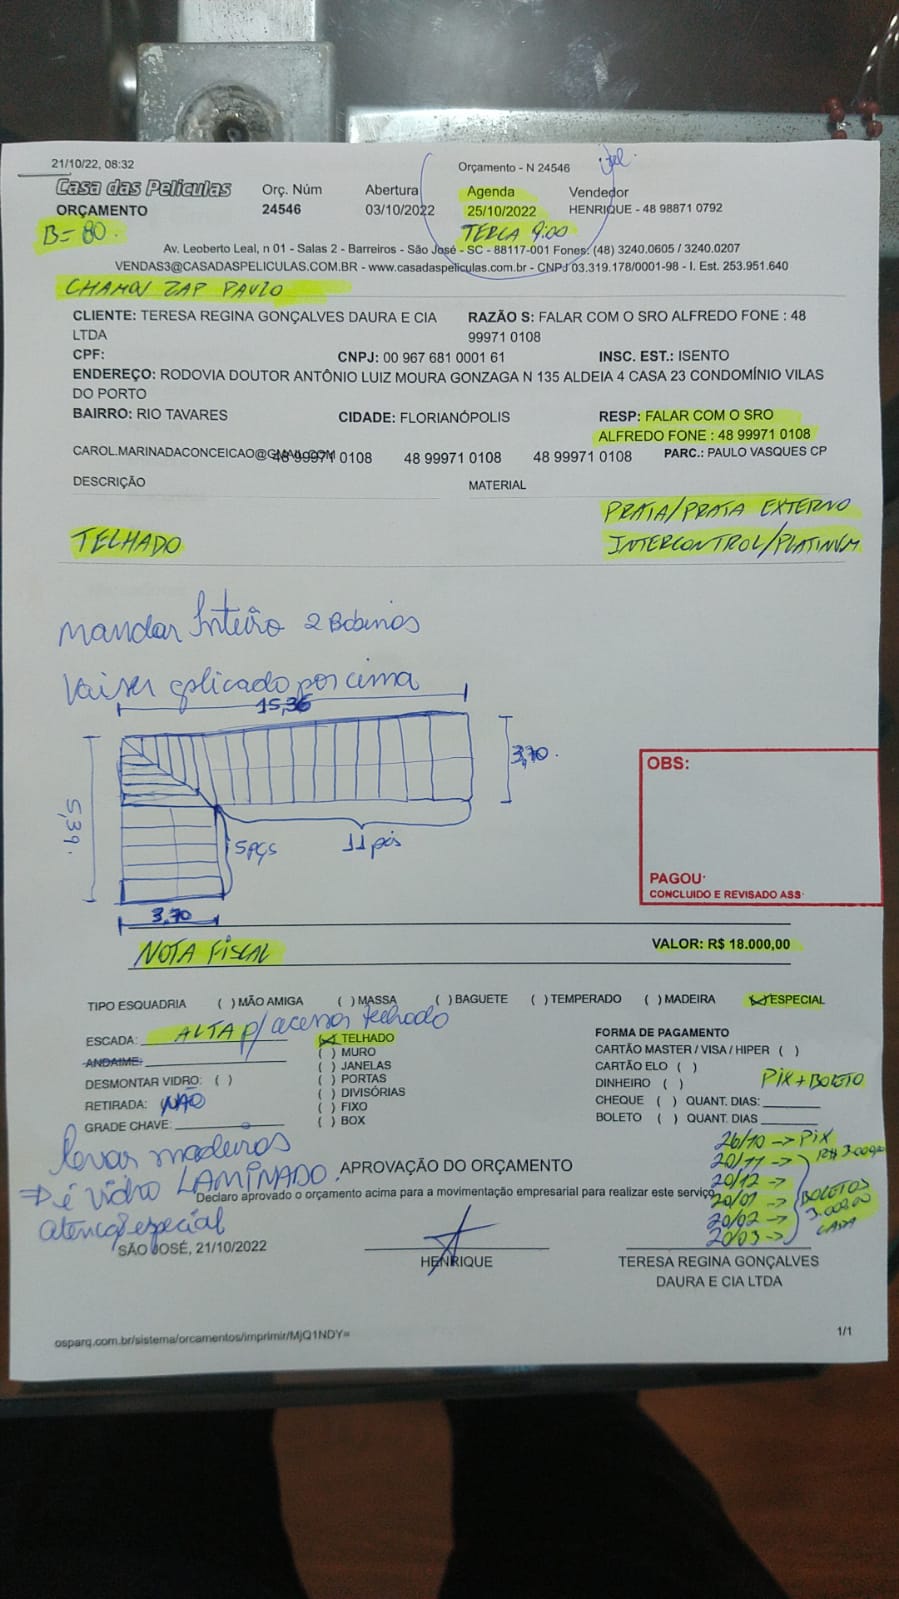 21/10/22, 08:32
Orçamento - N 24546
Casa das Películas
Orç. Núm
Abertura
Agenda
Vendedor
ORÇAMENTO
24546
03/10/2022
25/10/2022
HENRIQUE - 48 98871 0792
B=80.
TERÇA 9:00
Av. Leoberto Leal, n 01 - Salas 2 - Barreiros - São José - SC - 88117-001 Fones: (48) 3240.0605 / 3240.0207
VENDAS3@CASADASPELICULAS.COM.BR - www.casadaspeliculas.com.br - CNPJ 03.319.178/0001-98 - I. Est. 253.951.640
CHAMOU ZAP PAULO
CLIENTE: TERESA REGINA GONÇALVES DAURA E CIA LTDA
RAZÃO S: FALAR COM O SRO ALFREDO FONE : 48 99971 0108
CPF:
CNPJ: 00 967 681 0001 61
INSC. EST.: ISENTO
ENDEREÇO: RODOVIA DOUTOR ANTÔNIO LUIZ MOURA GONZAGA N 135 ALDEIA 4 CASA 23 CONDOMÍNIO VILAS
DO PORTO
BAIRRO: RIO TAVARES
CIDADE: FLORIANÓPOLIS
RESP: FALAR COM O SRO
ALFREDO FONE : 48 99971 0108
CAROL.MARINADACONCEICAO@GMAIL.COM
48 99971 0108
48 99971 0108
48 99971 0108
PARC.: PAULO VASQUES CP
DESCRIÇÃO
MATERIAL
PRATA/PRATA EXTERNO
TELHADO
INTERCONTROL/PLATINUM
mandar Inteiro 2 Bobinas
Vai ser aplicado por cima
15,36
3,70.
5,39.
5 pçs
11 pçs
3,70
OBS:
PAGOU:
CONCLUIDO E REVISADO ASS:
NOTA FISCAL
VALOR: R$ 18.000,00
TIPO ESQUADRIA
( ) MÃO AMIGA
( ) MASSA
( ) BAGUETE
( ) TEMPERADO
( ) MADEIRA
(X) ESPECIAL
ESCADA: ALTA p/ acessar telhado
ANDAIME:
DESMONTAR VIDRO: ( )
RETIRADA: NÃO
GRADE CHAVE:
(X) TELHADO
( ) MURO
( ) JANELAS
( ) PORTAS
( ) DIVISÓRIAS
( ) FIXO
( ) BOX
FORMA DE PAGAMENTO
CARTÃO MASTER / VISA / HIPER ( )
CARTÃO ELO ( )
DINHEIRO ( )
PIX + BOLETO
CHEQUE ( ) QUANT. DIAS:
BOLETO ( ) QUANT. DIAS
levar madeiras
→ é vidro LAMINADO.
atenção especial
26/10 -> PIX
R$ 3.000,00
20/11 ->
20/12 ->
20/01 ->
20/02 ->
20/03 ->
BOLETOS
3.000,00
CADA
APROVAÇÃO DO ORÇAMENTO
Declaro aprovado o orçamento acima para a movimentação empresarial para realizar este serviço.
SÃO JOSÉ, 21/10/2022
HENRIQUE
TERESA REGINA GONÇALVES
DAURA E CIA LTDA
osparq.com.br/sistema/orcamentos/imprimir/MjQ1NDY=
1/1